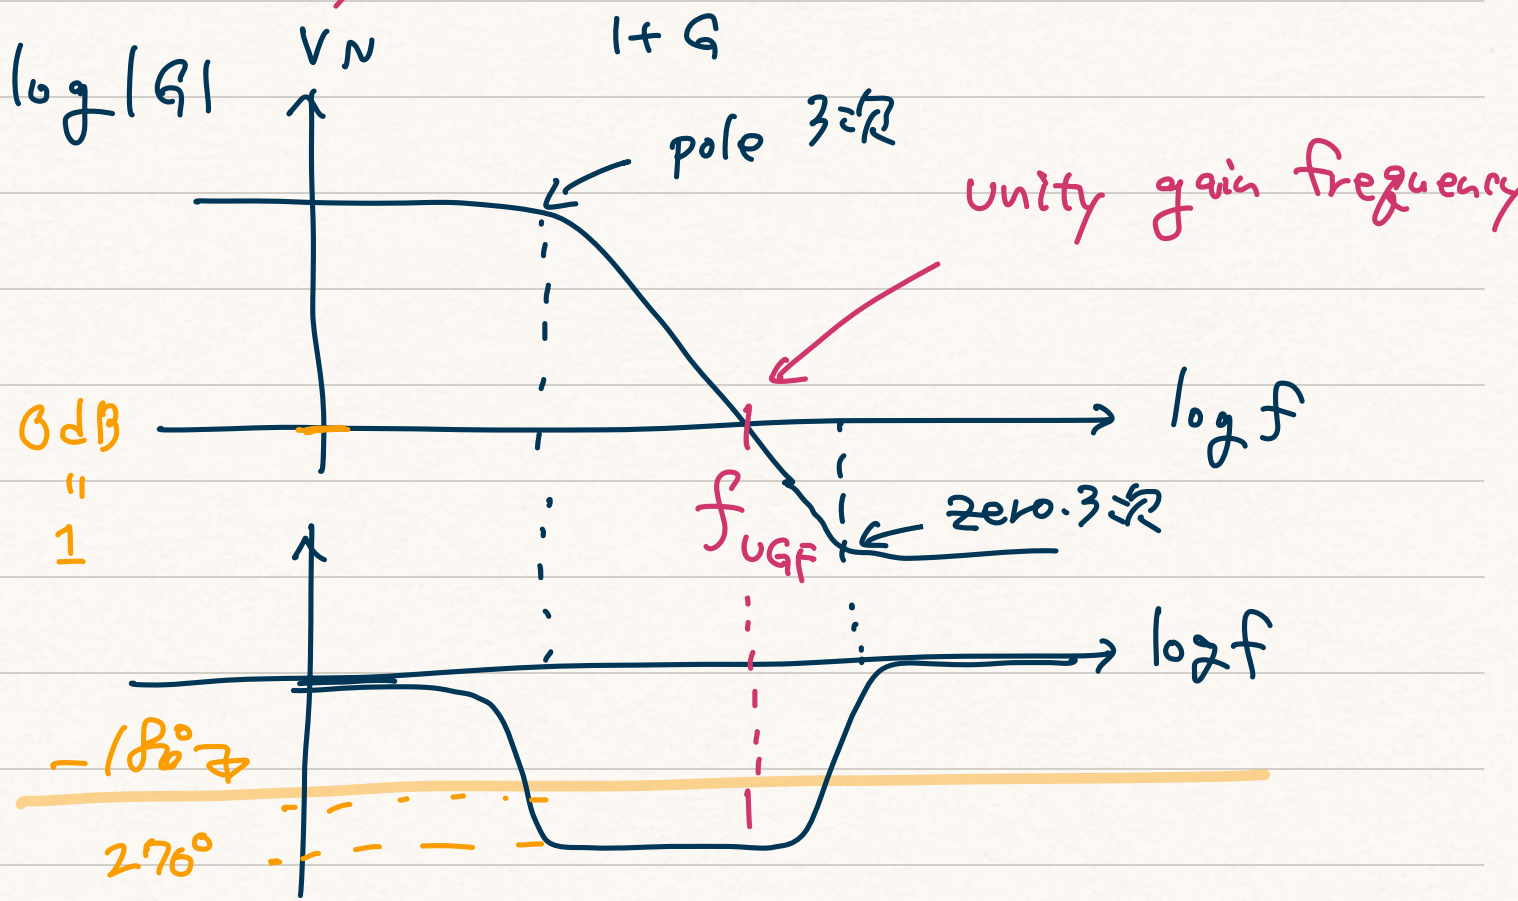 V_N
1+G
log|G|
pole 3次
unity gain frequency
0dB
"
1
log f
f_UGF
zero.3次
log f
-180°
270°